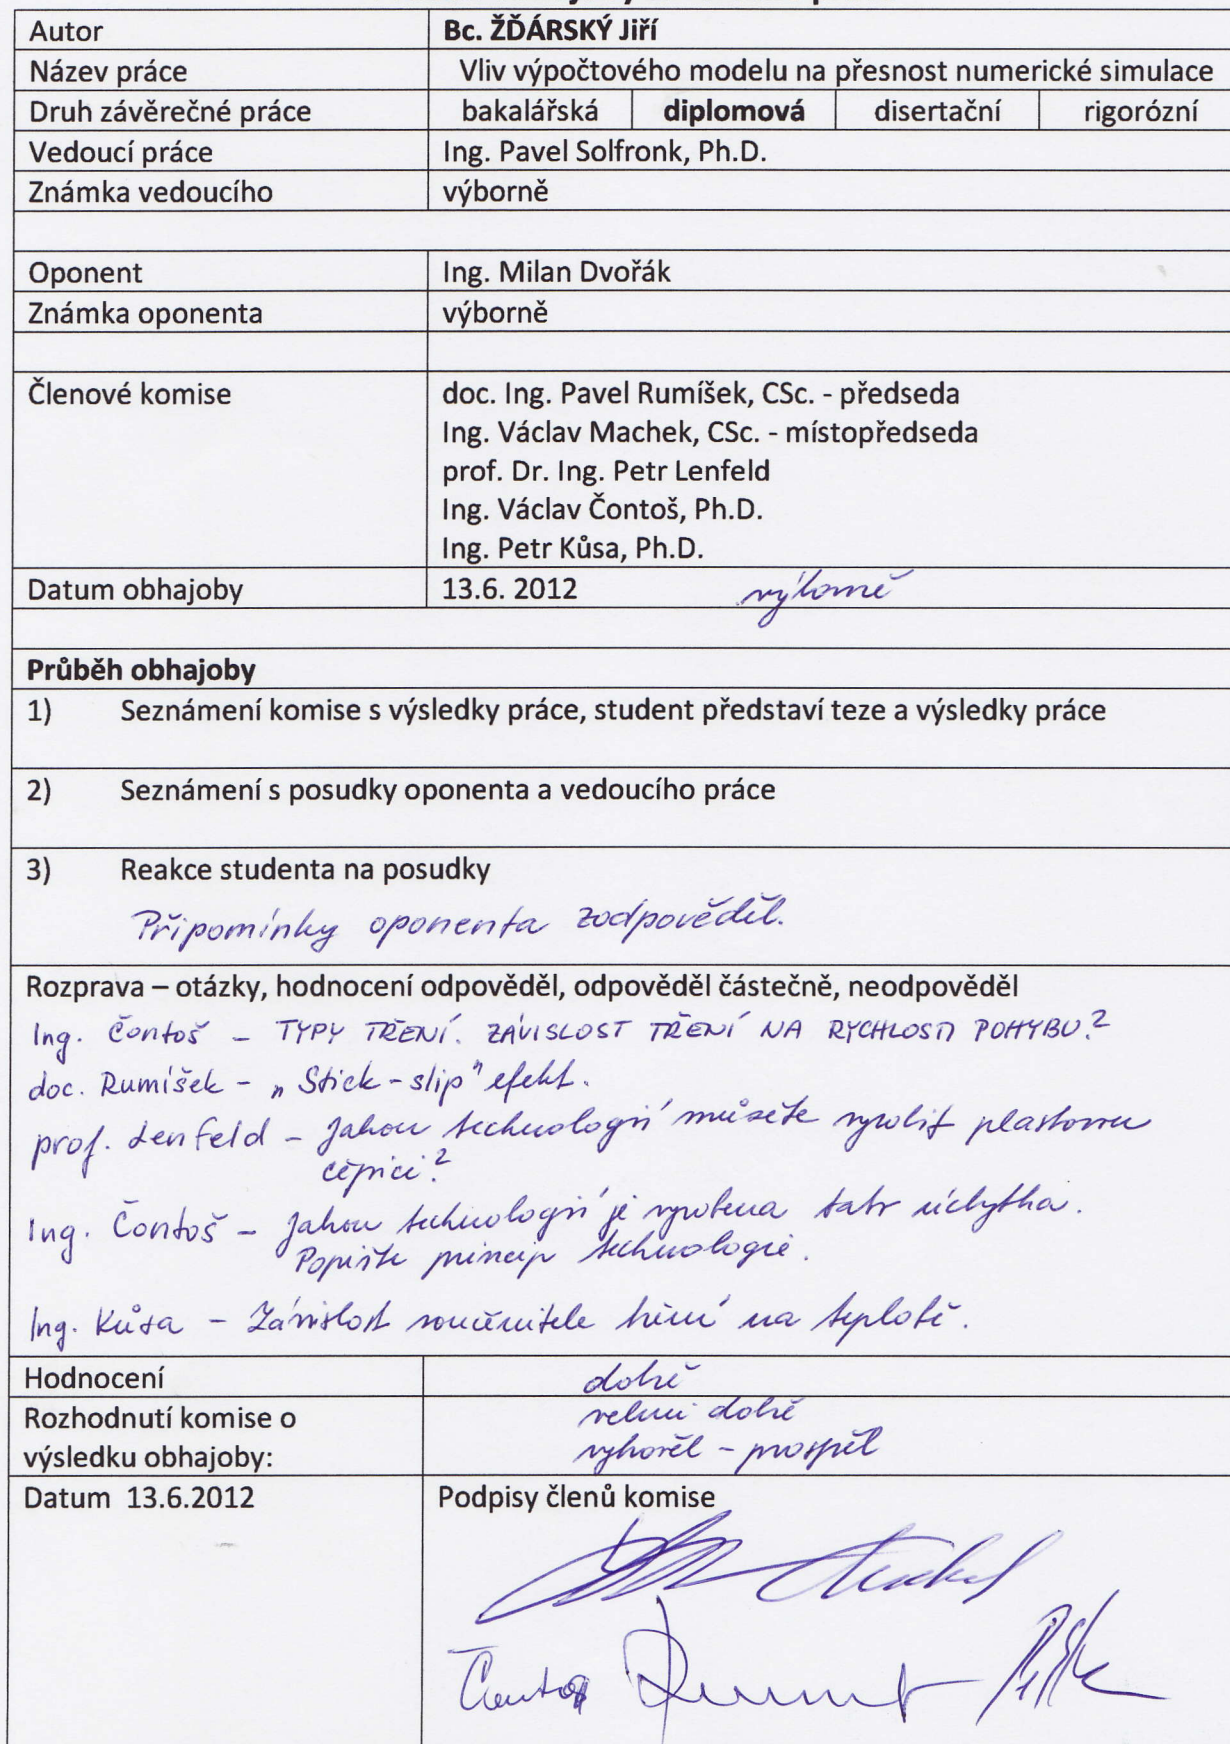 Autor Bc. ŽĎÁRSKÝ Jiří
Název práce Vliv výpočtového modelu na přesnost numerické simulace
Druh závěrečné práce bakalářská diplomová disertační rigorózní
Vedoucí práce Ing. Pavel Solfronk, Ph.D.
Známka vedoucího výborně
Oponent Ing. Milan Dvořák
Známka oponenta výborně
Členové komise doc. Ing. Pavel Rumíšek, CSc. - předseda
Ing. Václav Machek, CSc. - místopředseda
prof. Dr. Ing. Petr Lenfeld
Ing. Václav Čontoš, Ph.D.
Ing. Petr Kůsa, Ph.D.
Datum obhajoby 13.6. 2012 výborně
Průběh obhajoby
1) Seznámení komise s výsledky práce, student představí teze a výsledky práce
2) Seznámení s posudky oponenta a vedoucího práce
3) Reakce studenta na posudky
Připomínky oponenta zodpověděl.
Rozprava – otázky, hodnocení odpověděl, odpověděl částečně, neodpověděl
Ing. Čontoš – TYPY TŘENÍ. ZÁVISLOST TŘENÍ NA RYCHLOSTI POHYBU?
doc. Rumíšek - „Stick-slip" efekt.
prof. Lenfeld – Jakou technologií můžete vyrobit plastovou
čepici?
Ing. Čontoš – Jakou technologií je vyrobena tato úchytka.
Popište princip technologie.
Ing. Kůsa – Závislost součinitele tření na teplotě.
Hodnocení dobře
Rozhodnutí komise o velmi dobře
výsledku obhajoby: vyhověl – prospěl
Datum 13.6.2012 Podpisy členů komise